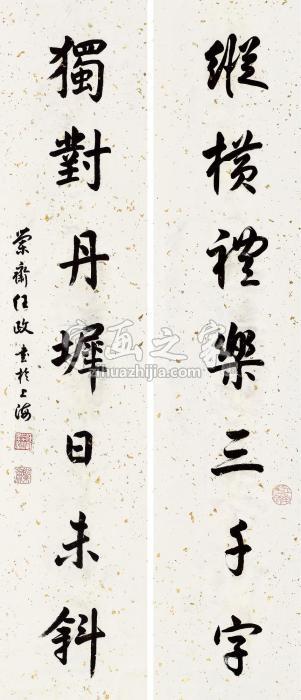 縱橫禮樂三千字
獨對丹墀日未斜
蘭齋任政書於上海
字画之家
zihuazhijia.com